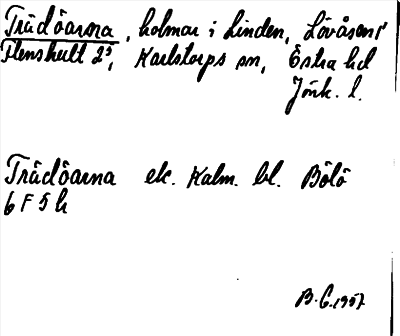 Trädöarna, holmar i Linden, Lövåsen 1¹
Flenshult 2³, Karlstorps sn, Östra hd
Jönk. l.
Trädöarna ek. Kalm. bl. Bölö
6 F 5 h
B.G. 1957